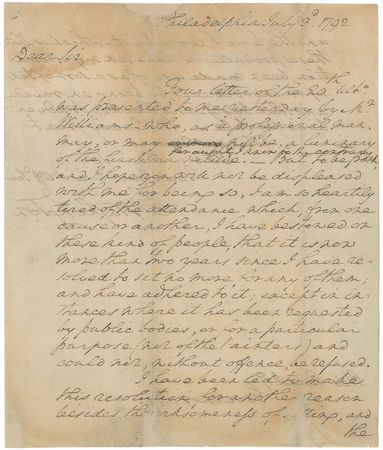 Philadelphia July 3d 1792
Dear Sir,
Your letter of the 20th Ulto
was presented to me yesterday by Mr
Williams - who, as a professional man,
may, or may not be, a luminary
of the first magnitude. But to be frank,
and I hope you will not be displeased
with me for being so, I am so heartily
tired of the attendance which, from one
cause or another, I have bestowed on
these kind of people, that it is now
more than two years since I have re-
solved to sit no more for any of them;
and have adhered to it; except in in-
stances where it has been requested
by public bodies, or for a particular
purpose (not of the Painters) and
could not, without offence, be refused.
I have been led to make
this resolution for another reason
besides the irksomeness of sitting, and
the